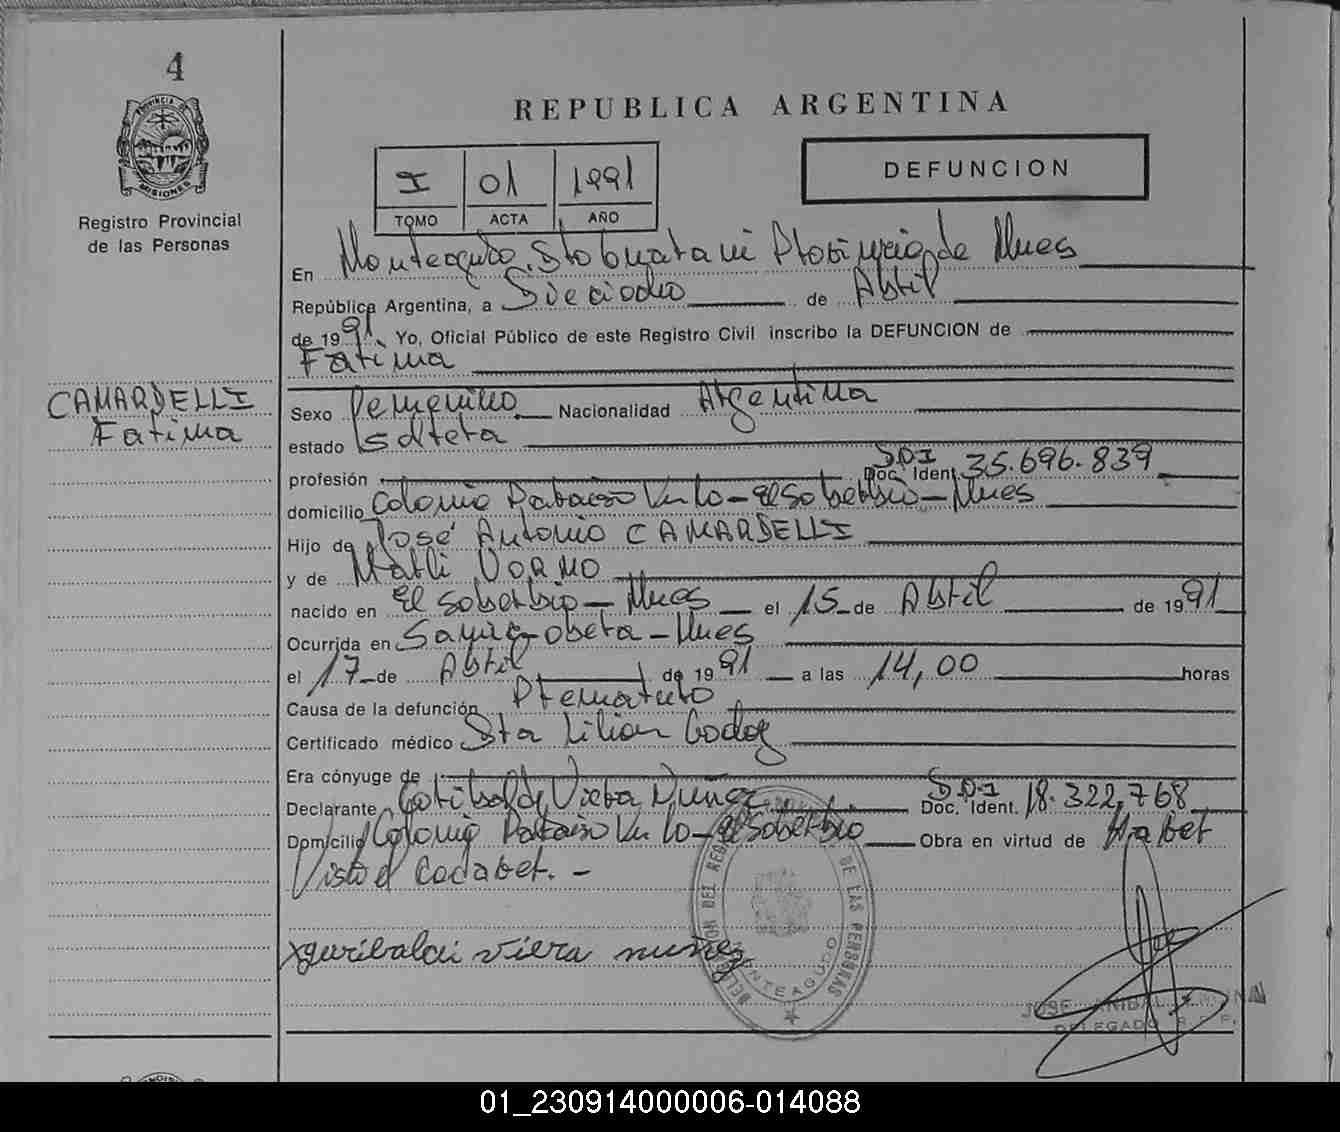 4
PROVINCIA DE
MISIONES
Registro Provincial
de las Personas
REPUBLICA ARGENTINA
I 01 1991
TOMO ACTA AÑO
DEFUNCION
En Monteagudo, Provincia de Mnes
República Argentina, a Dieciocho de Abril
de 1991. Yo, Oficial Público de este Registro Civil inscribo la DEFUNCION de
Fatima
CAMARDELLI
Fatima
Sexo Femenino Nacionalidad Argentina
estado soltera
profesión Doc. Ident. 35.696.839
domicilio Colonia Paraiso - El Soberbio - Mnes
Hijo de José Antonio CAMARDELLI
y de Marli
nacido en El Soberbio - Mnes el 15 de Abril de 1991
Ocurrida en Obera - Mnes
el 17 de Abril de 1991 a las 14,00 horas
Causa de la defunción Prematuro
Certificado médico Dra Lilian Godoy
Era cónyuge de
Declarante Garibaldy Viera Nuñez Doc. Ident. 18.322,768
Domicilio Colonia Paraiso - El Soberbio Obra en virtud de Haber
Visto el Cadaver. -
xgaribaldi viera nuñez
DEL REG DE LAS PERSONAS
MONTEAGUDO
JOSE ANIBAL
DELEGADO R. P. P.
01_230914000006-014088